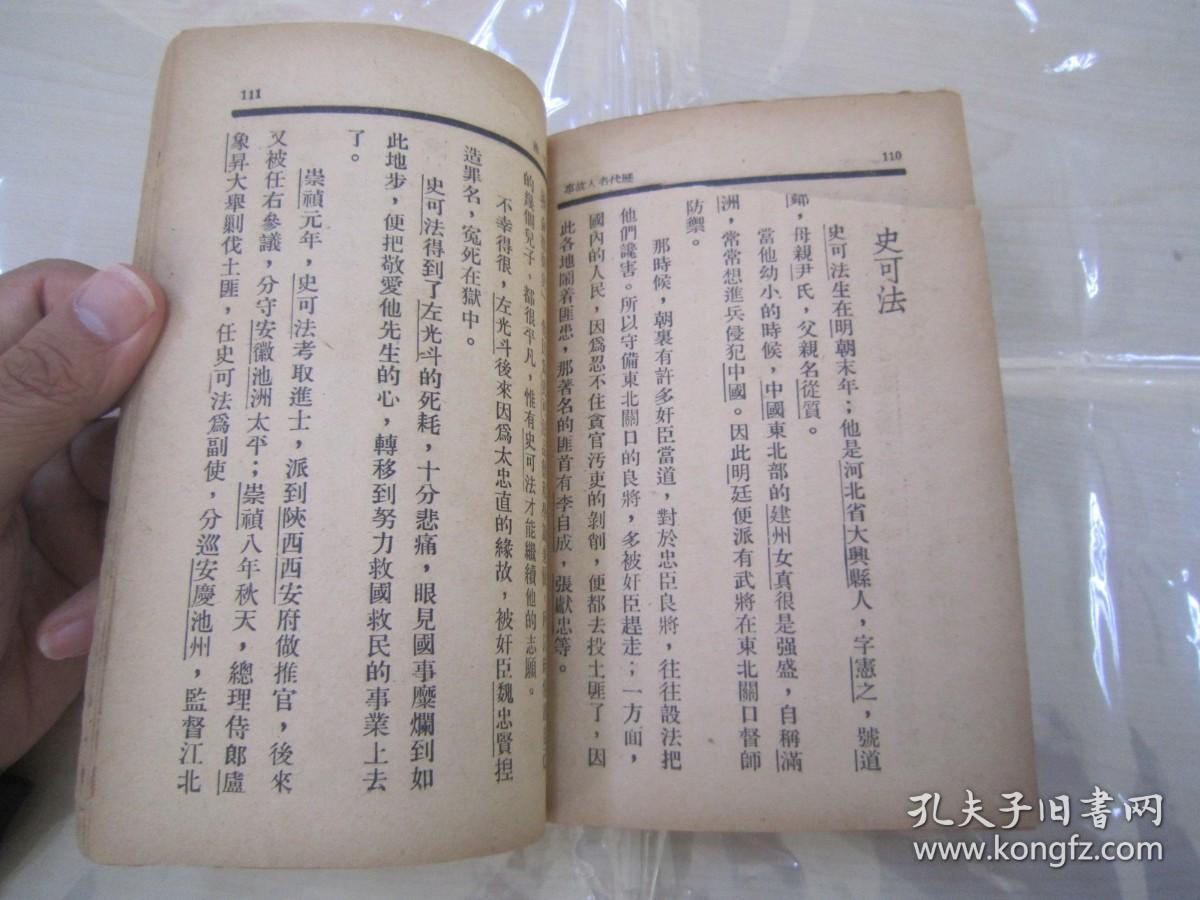 110
歷代名人故事
史可法
史可法生在明朝末年；他是河北省大興縣人，字憲之，號道
鄰，母親尹氏，父親名從質。
當他幼小的時候，中國東北部的建州女真很是强盛，自稱滿
洲，常常想進兵侵犯中國。因此明廷便派有武將在東北關口督師
防禦。
那時候，朝裏有許多奸臣當道，對於忠臣良將，往往設法把
他們讒害。所以守備東北關口的良將，多被奸臣趕走；一方面，
國內的人民，因爲忍不住貪官汚吏的剝削，便都去投土匪了，因
此各地鬧着匪患，那著名的匪首有李自成，張獻忠等。
111
的幾個兒子，都很平凡，惟有史可法才能繼續他的志願。
不幸得很，左光斗後來因爲太忠直的緣故，被奸臣魏忠賢揑
造罪名，寃死在獄中。
史可法得到了左光斗的死耗，十分悲痛，眼見國事糜爛到如
此地步，便把敬愛他先生的心，轉移到努力救國救民的事業上去
了。
崇禎元年，史可法考取進士，派到陝西西安府做推官，後來
又被任右參議，分守安徽池洲太平；崇禎八年秋天，總理侍郎盧
象昇大舉剿伐土匪，任史可法爲副使，分巡安慶池州，監督江北
孔夫子旧书网
www.kongfz.com